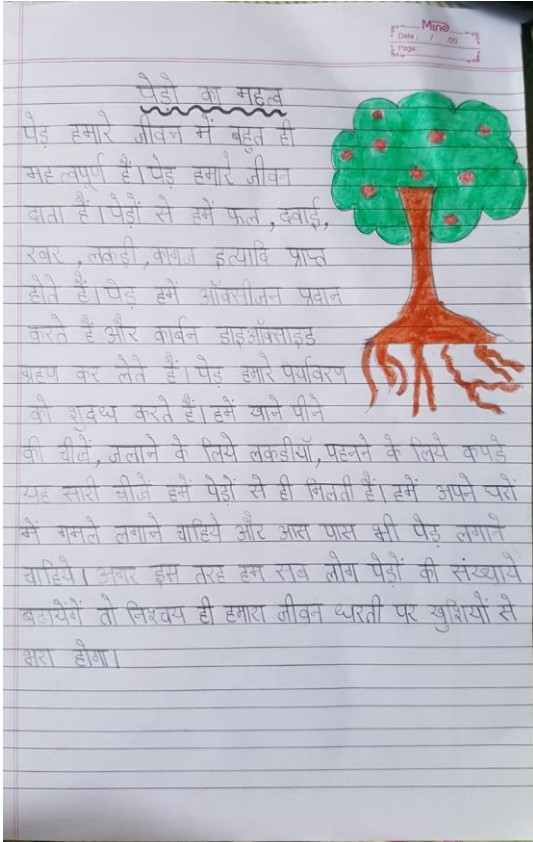 Mino
Date : / /201
Page :
पेड़ो का महत्व
पेड़ हमारे जीवन में बहुत ही
महत्वपूर्ण हैं। पेड़ हमारे जीवन
दाता हैं। पेड़ों से हमें फल , दवाई,
रबर , लकड़ी , कागज इत्यादि प्राप्त
होते हैं। पेड़ हमें ऑक्सीजन प्रदान
करते हैं और कार्बन डाइऑक्साइड
ग्रहण कर लेते हैं। पेड़ हमारे पर्यावरण
को शुद्ध करते हैं। हमें खाने पीने
की चीजें, जलाने के लिये लकडीयाँ, पहनने के लिये कपडे
यह सारी चीजें हमें पेड़ों से ही मिलती हैं। हमें अपने घरों
में गमले लगाने चाहिये और आस पास भी पेड़ लगाने
चाहिये। अगर इस तरह हम सब लोग पेड़ों की संख्याये
बढायेंगें तो निश्चय ही हमारा जीवन धरती पर खुशियों से
भरा होगा।